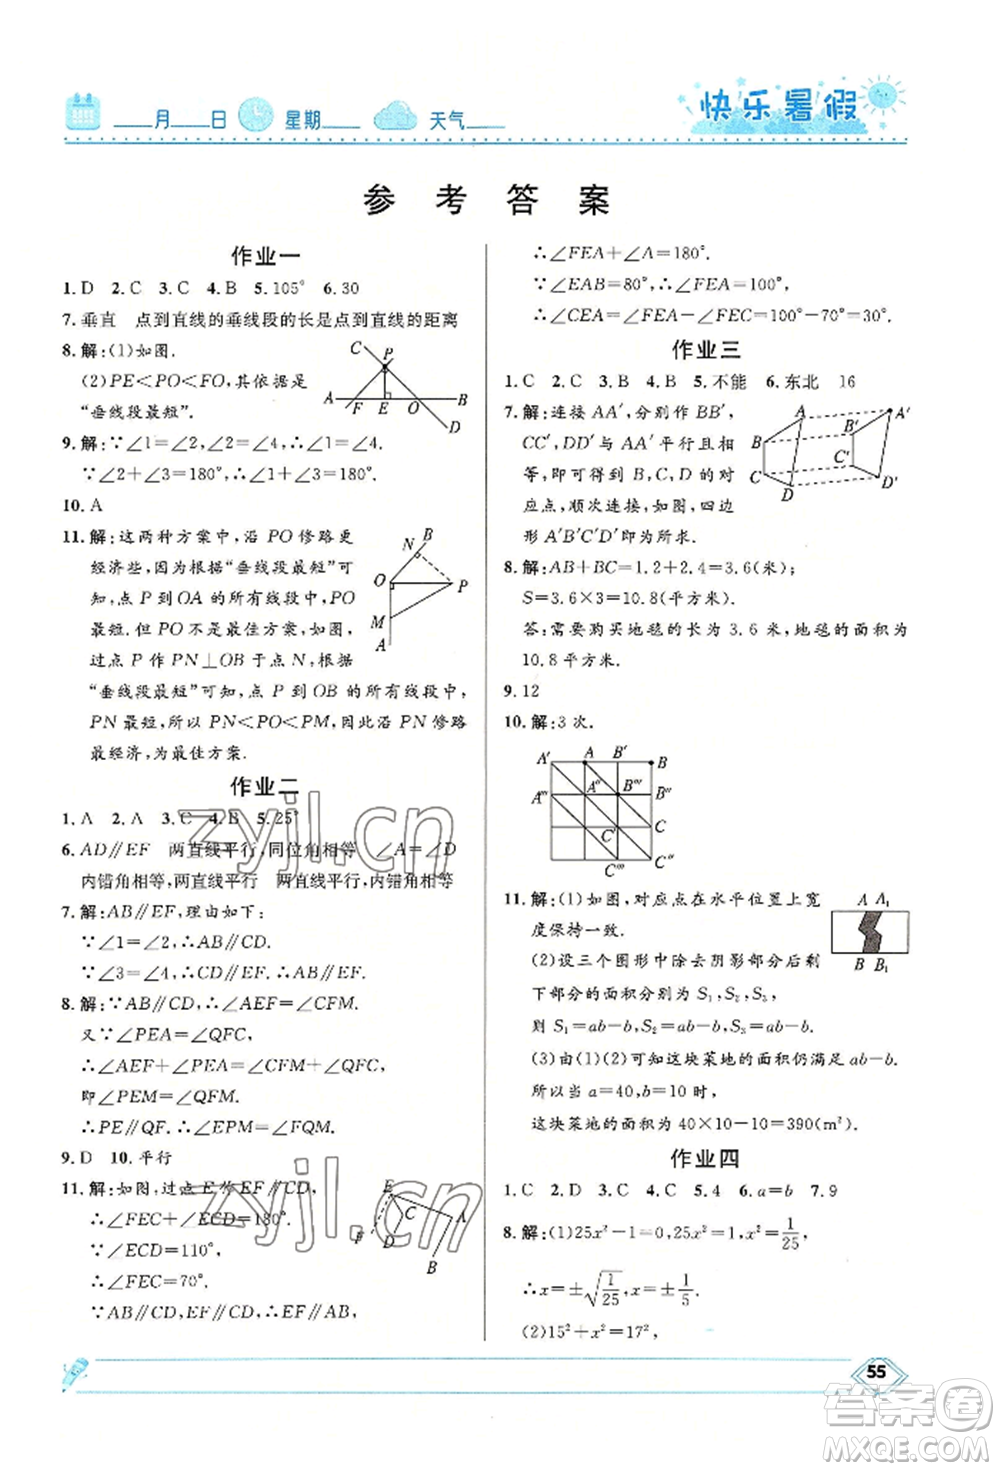 ____月____日 星期____ 天气____
快乐暑假
参 考 答 案
作业一
1. D 2. C 3. C 4. B 5. 105° 6. 30
7. 垂直 点到直线的垂线段的长是点到直线的距离
8. 解:(1)如图.
(2)PE<PO<FO,其依据是
“垂线段最短”.
C P A F E O B D
9. 解:∵∠1=∠2,∠2=∠4,∴∠1=∠4.
∵∠2+∠3=180°,∴∠4+∠3=180°.
10. A
11. 解:这两种方案中,沿 PO 修路更
经济些,因为根据“垂线段最短”可
知,点 P 到 OA 的所有线段中,PO
最短.但 PO 不是最佳方案,如图,
过点 P 作 PN⊥OB 于点 N,根据
“垂线段最短”可知,点 P 到 OB 的所有线段中,
PN 最短,所以 PN<PO<PM,因此沿 PN 修路
最经济,为最佳方案.
B N O P M A
作业二
1. A 2. A 3. C 4. B 5. 25°
6. AD∥EF 两直线平行,同位角相等 ∠A=∠D
内错角相等,两直线平行 两直线平行,内错角相等
7. 解:AB∥EF,理由如下:
∵∠1=∠2,∴AB∥CD.
∵∠3=∠4,∴CD∥EF.∴AB∥EF.
8. 解:∵AB∥CD,∴∠AEF=∠CFM.
又∵∠PEA=∠QFC,
∴∠AEF+∠PEA=∠CFM+∠QFC,
即∠PEM=∠QFM.
∴PE∥QF.∴∠EPM=∠FQM.
9. D 10. 平行
11. 解:如图,过点 E 作 EF∥CD,
∴∠FEC+∠ECD=180°.
∵∠ECD=110°,
∴∠FEC=70°.
∵AB∥CD,EF∥CD,∴EF∥AB,
E C A F D B
∴∠FEA+∠A=180°.
∵∠EAB=80°,∴∠FEA=100°,
∴∠CEA=∠FEA-∠FEC=100°-70°=30°.
作业三
1. C 2. C 3. B 4. B 5. 不能 6. 东北 16
7. 解:连接 AA′,分别作 BB′,
CC′,DD′与 AA′平行且相
等,即可得到 B,C,D 的对
应点,顺次连接,如图,四边
形 A′B′C′D′即为所求.
A A′ B B′ C C′ D D′
8. 解:AB+BC=1.2+2.4=3.6(米);
S=3.6×3=10.8(平方米).
答:需要购买地毯的长为 3.6 米,地毯的面积为
10.8 平方米.
9. 12
10. 解:3 次.
A′ A B′ B
A″ A‴ B‴ B″
C′ C
C‴ C″
11. 解:(1)如图,对应点在水平位置上宽
度保持一致.
A A₁
B B₁
(2)设三个图形中除去阴影部分部分剩
下部分的面积分别为 S₁,S₂,S₃,
则 S₁=ab-b,S₂=ab-b,S₃=ab-b.
(3)由(1)(2)可知这块菜地的面积仍满足 ab-b,
所以当 a=40,b=10 时,
这块菜地的面积为 40×10-10=390(m²).
作业四
1. C 2. D 3. C 4. C 5. 4 6. a=b 7. 9
8. 解:(1)25x²-1=0,25x²=1,x²=1/25,
∴x=±√(1/25)=±1/5.
(2)15²+x²=17²,
55
zyjl.cn
zyjl.cn
答案圈
MXQE.COM